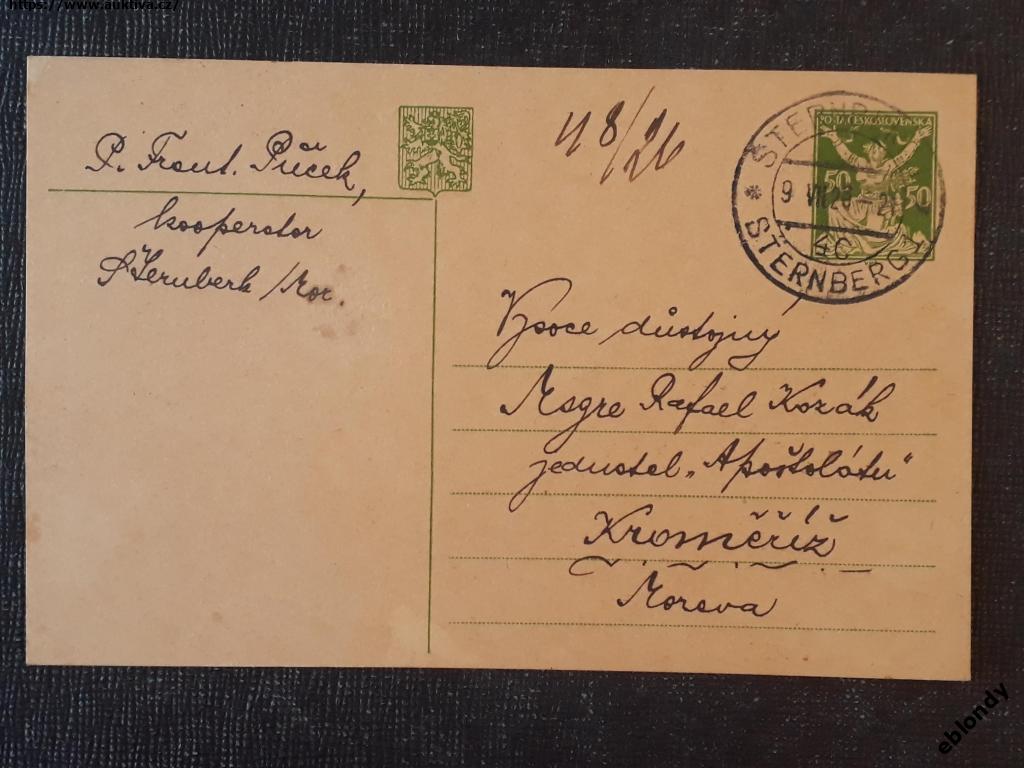 https://www.auktiva.cz/
P. Frant. Půček,
kooperator
Šternberk /Mor.
48/26
POŠTA ČESKOSLOVENSKA
50 50
ŠTERNBERK
9 VII 26
4c
ŠTERNBERG
Vysoce důstojný
Msgre Rafael Kozák
jednatel „Apoštolátu"
Kroměříž
Morava
eblondy